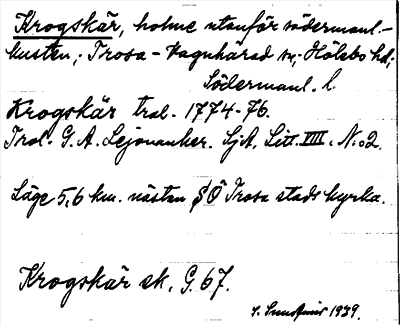 Krogskär, holme utanför södermanl.-
kusten; Trosa-Vagnhärad sn; Hölebo hd;
Södermanl. l.
Krogskär tral. 1774-76.
Tral. G. A. Lejonanker. SjA, Litt. VIII. N:o 2.
Läge 5,6 km. nästan SÖ Trosa stads kyrka.
Krogskär ek. G. 67.
1939.